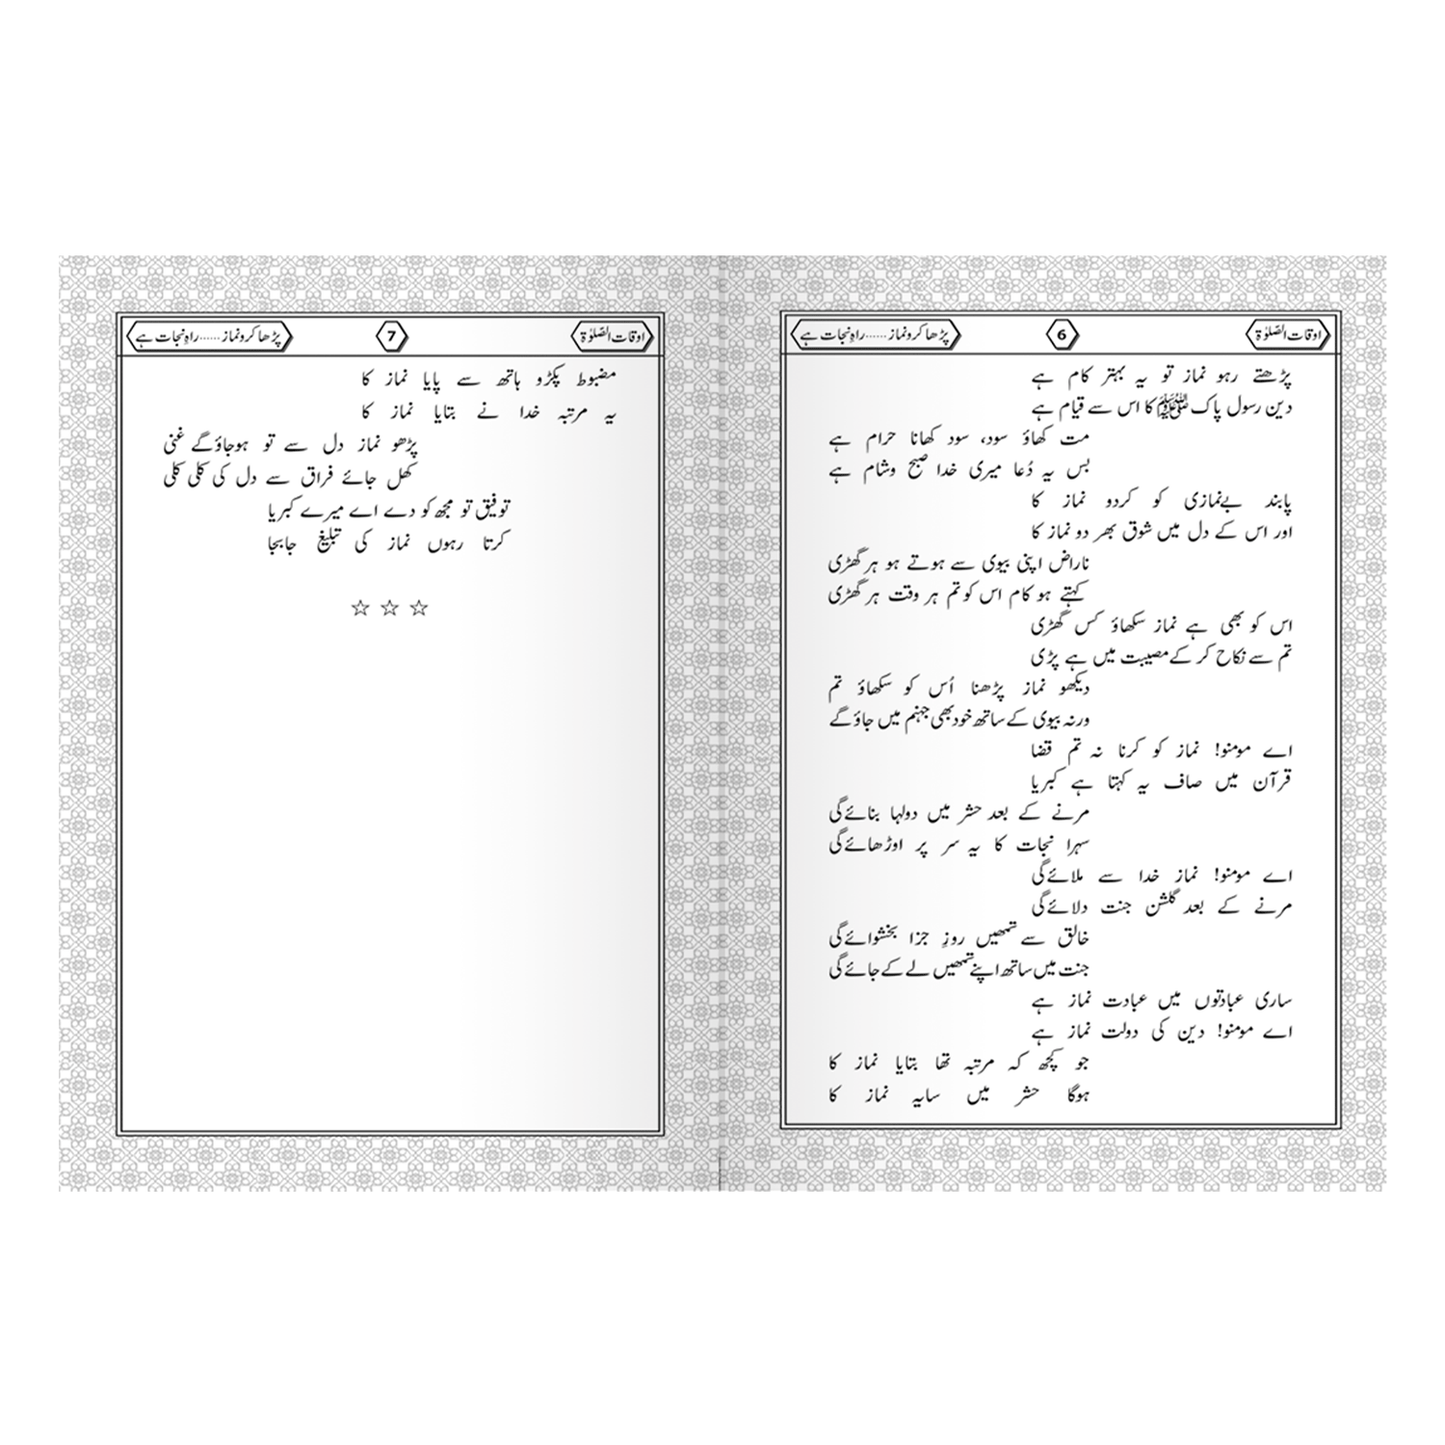 اوقات الصّلوٰۃ
6
پڑھا کرو نماز......راہِ نجات ہے
پڑھتے رہو نماز تو یہ بہتر کام ہے
دین رسول پاک ﷺ کا اس سے قیام ہے
مت کھاؤ سود، سود کھانا حرام ہے
بس یہ دُعا میری خدا صبح وشام ہے
پابند بےنمازی کو کردو نماز کا
اور اس کے دل میں شوق بھر دو نماز کا
ناراض اپنی بیوی سے ہوتے ہو ہر گھڑی
کہتے ہو کام اس کو تم ہر وقت ہر گھڑی
اس کو بھی ہے نماز سکھاؤ کس گھڑی
تم سے نکاح کر کے مصیبت میں ہے پڑی
دیکھو نماز پڑھنا اُس کو سکھاؤ تم
ورنہ بیوی کے ساتھ خود بھی جہنم میں جاؤ گے
اے مومنو! نماز کو کرنا نہ تم قضا
قرآن میں صاف یہ کہتا ہے کبریا
مرنے کے بعد حشر میں دولہا بنائے گی
سہرا نجات کا یہ سر پر اوڑھائے گی
اے مومنو! نماز خدا سے ملائے گی
مرنے کے بعد گلشن جنت دلائے گی
خالق سے تمھیں روزِ جزا بخشوائے گی
جنت میں ساتھ اپنے تمھیں لے کے جائے گی
ساری عبادتوں میں عبادت نماز ہے
اے مومنو! دین کی دولت نماز ہے
جو کچھ کہ مرتبہ تھا بتایا نماز کا
ہوگا حشر میں سایہ نماز کا
اوقات الصّلوٰۃ
7
پڑھا کرو نماز......راہِ نجات ہے
مضبوط پکڑو ہاتھ سے پایا نماز کا
یہ مرتبہ خدا نے بتایا نماز کا
پڑھو نماز دل سے تو ہوجاؤ گے غنی
کھل جائے فراق سے دل کی کلی کلی
توفیق تو مجھ کو دے اے میرے کبریا
کرتا رہوں نماز کی تبلیغ جابجا
☆ ☆ ☆